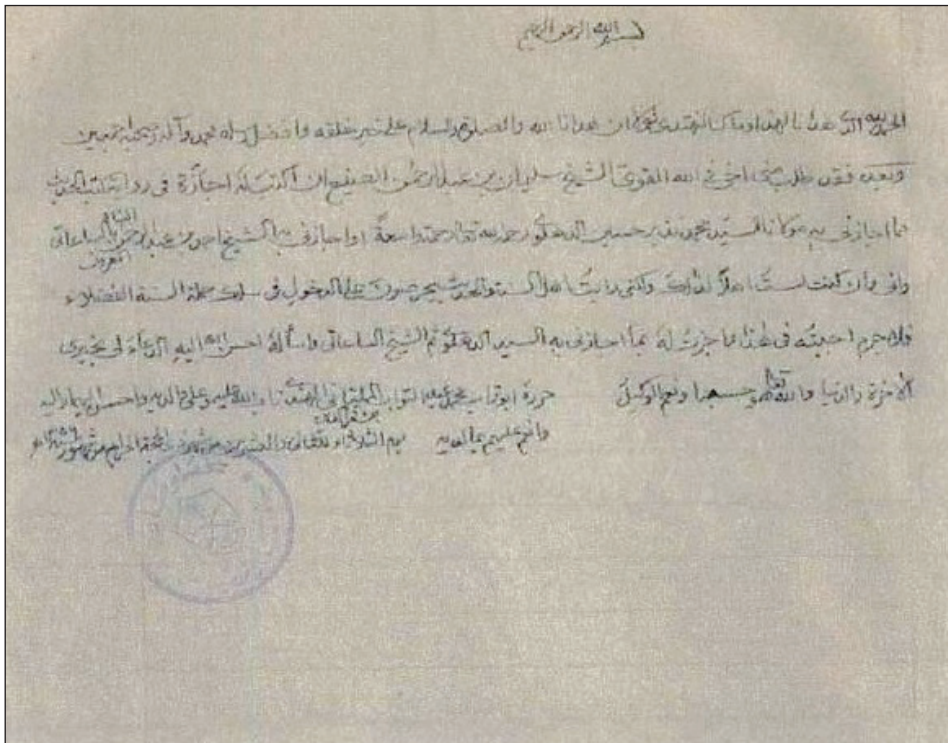 بسم الله الرحمن الرحيم
الحمد لله الذي هدانا لهذا وما كنا لنهتدي لولا ان هدانا الله والصلوة والسلام على خير خلقه وافضل رسله محمد وآله وصحبه اجمعين
وبعد فقد طلب مني اخي في الله القوي الشيخ سليمان بن عبد الرحمن الصنيع ان اكتب له اجازة في رواية كتب الحديث
بما اجازني به مولانا السيد محمد نذير حسين المذكور رحمه الله تعالى رحمة واسعة او اجازني به الشيخ احمد بن عبد الرحمن البنا المعروف بالساعاتي
واني وان كنت لست اهلا لذلك ولكني رايت اهل السنة والحديث يحرصون على الدخول في سلك حملة السنة الفضلاء
فلا جرم اجبته في هذا فاجزت له بما اجازني به السيد المذكور ثم الشيخ الساعاتي واسأله احسن الله اليه الدعاء لي بخيري
الآخرة والدنيا والله تعالى حسبنا ونعم الوكيل حرره ابو تراب محمد عبد التواب الملتاني الهندي تاب الله عليه وعلى والديه واحسن اليهما واليه
وانعم عليهم بما لديه بمكة المكرمة يوم الثلاثاء والعشرين من شهر ذي الحجة الحرام من شهور